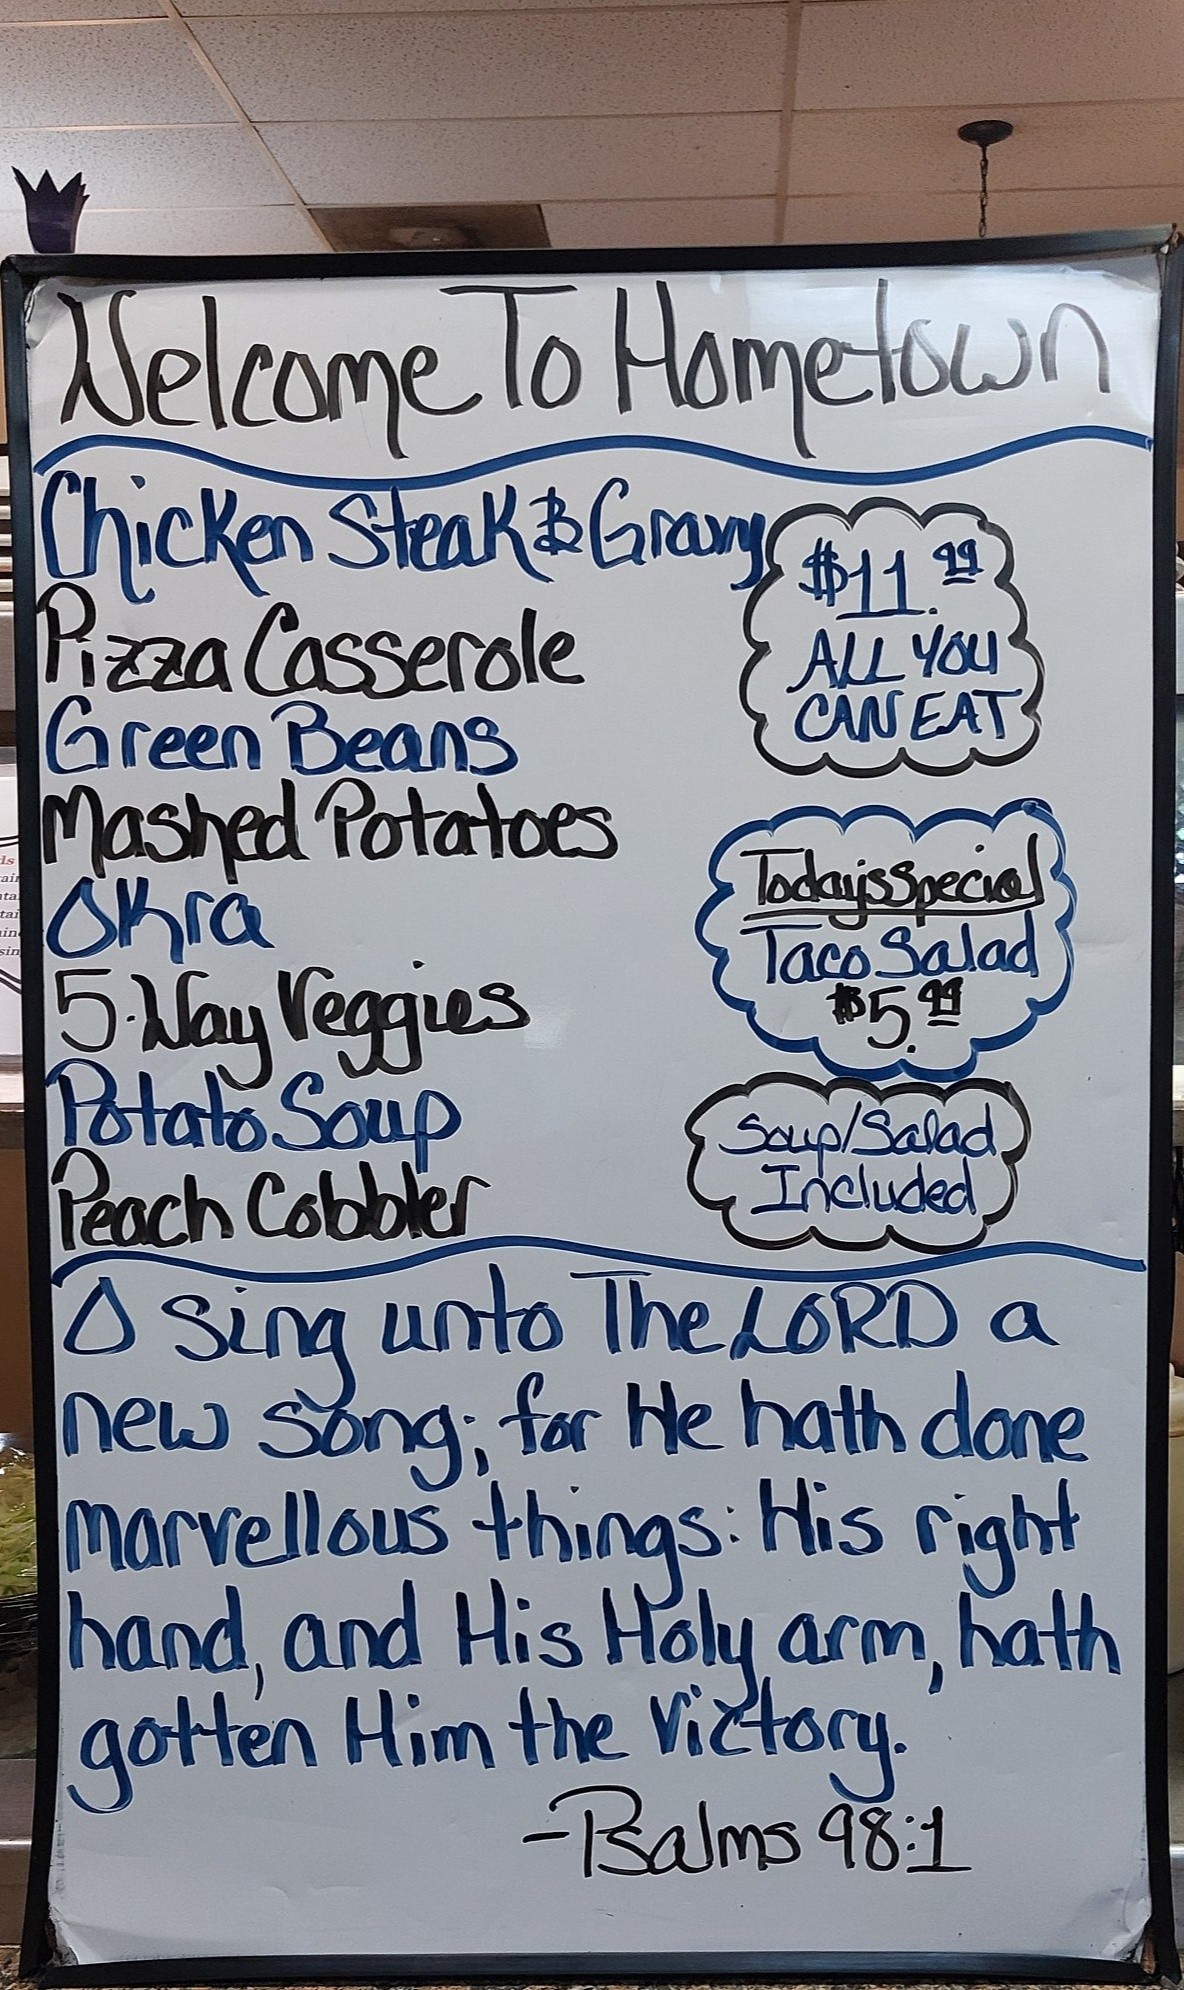 Welcome To Hometown
Chicken Steak & Gravy
Pizza Casserole
Green Beans
Mashed Potatoes
Okra
5-Way Veggies
Potato Soup
Peach Cobbler
$11.99
ALL YOU
CAN EAT
Today's Special
Taco Salad
$5.99
Soup/Salad
Included
O sing unto The LORD a
new song; for He hath done
marvellous things: His right
hand, and His Holy arm, hath
gotten Him the Victory.
-Psalms 98:1